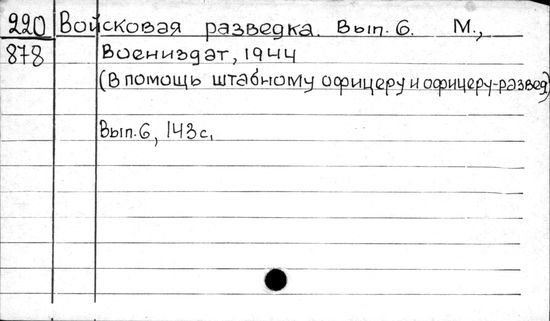 220 Войсковая разведка. Вып. 6. М.,
878 Воениздат, 1944
(В помощь штабному офицеру и офицеру-развед)
Вып. 6, 143с.